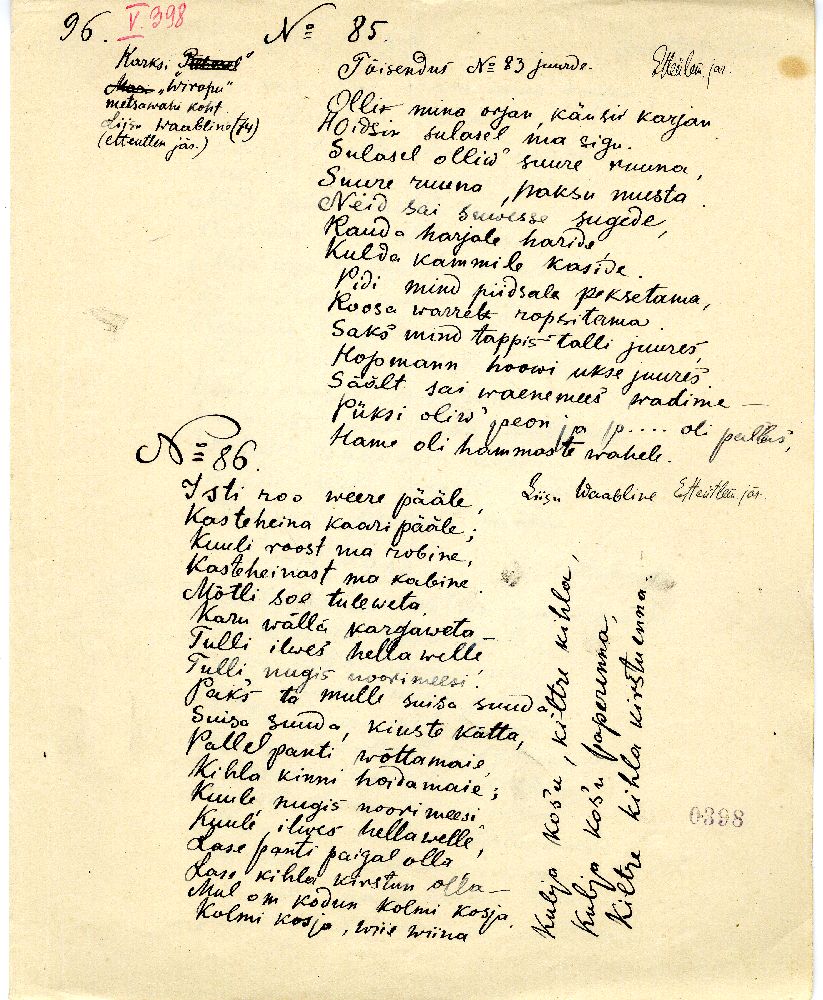 96. V. 398
No 85.
Karksi
"Wiropu"
metsawahi koht
Liisu Waabline (74)
(etteütlem. järg.)
Tõisendus No 83 juurde. Etteütlem. jär.
Ollin mina orjan, käusin karjan
Hoidsin sulasel ma sigu.
Sulasel olliw' suure ruuna,
Suure ruuna, paksu musta.
Neid sai suwesse sugede,
Rauda harjale haride
Kulda kammile kaside.
Pidi mind piidsala peksetama,
Roosa warrelt ropsitama.
Saks mind tappis talli juures,
Hopmann hoowi ukse juures.
Säält sai waenemees wadime —
Püksi oliw' peon ja p.... oli pallas,
Hame oli hammaste wahele.
No 86.
Liisu Waabline Etteütlem jär.
Isti roo weere pääle,
Kasteheina kaari pääle;
Kuuli roost ma robine,
Kasteheinast ma kabine.
Mõtli soe tuleweta
Karu wällä kargaweta —
Tulli ilwes hellawelle
Tulli nugis noorimeesi!
Paks ta mulle suisa suuda
Suisa suuda, kiuste kätta,
Pallel panti wõttamaie,
Kihla kinni hoidamaie;
Kuule nugis noorimeesi
Kuule, ilwes hellawelle,
Lase panti paigal olla
Lase kihla kirstun olla —
Mul om kodun kolmi kosja,
Kolmi kosja, wiie wiina
Kubja kosu, kiltre kihla,
Kubja kosu paperinna,
Kiltre kihla kirstu enna.
0398